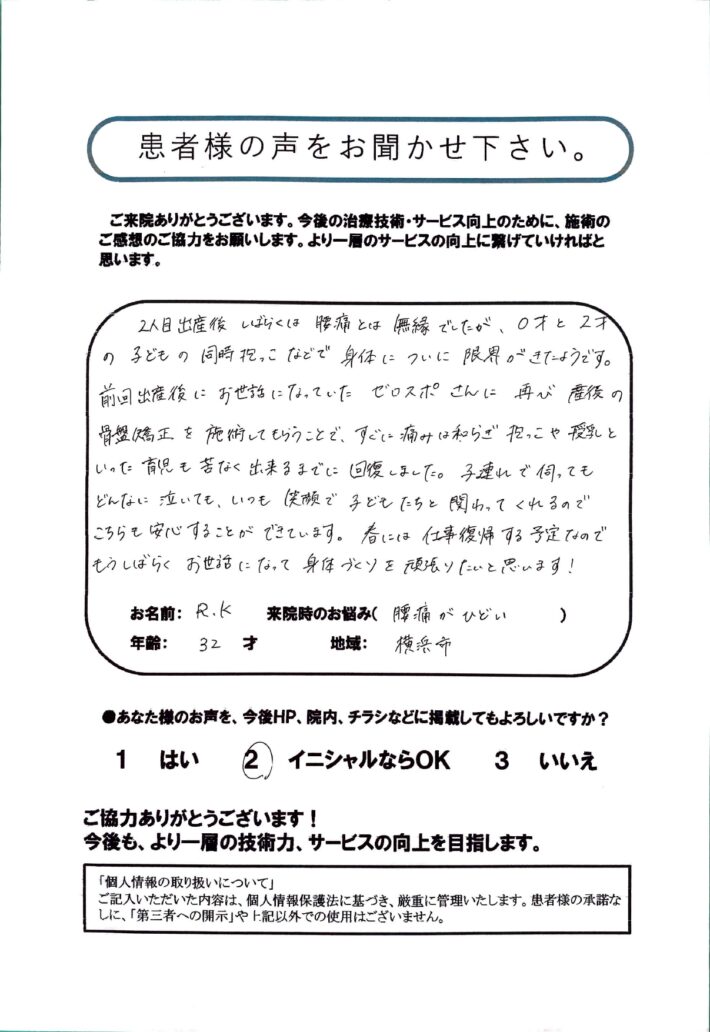 患者様の声をお聞かせ下さい。
ご来院ありがとうございます。今後の治療技術・サービス向上のために、施術の
ご感想のご協力をお願いします。より一層のサービスの向上に繋げていければと
思います。
2人目出産後 しばらくは 腰痛とは 無縁でしたが、0才と2才
の 子どもの 同時抱っこなどで 身体に ついに 限界がきたようです。
前回出産後に お世話になっていた ゼロスポ さんに 再び 産後の
骨盤矯正を 施術してもらうことで、すぐに痛みは和らぎ 抱っこや 授乳と
いった 育児も 苦なく 出来るまでに 回復しました。子連れで伺っても
どんなに 泣いても、いつも 笑顔で 子どもたちと 関わってくれるので
こちらも 安心することが できています。春には 仕事復帰する予定なので
もうしばらく お世話になって 身体づくりを 頑張りたいと思います！
お名前： R.K 来院時のお悩み（ 腰痛がひどい ）
年齢： 32 才 地域： 横浜市
●あなた様のお声を、今後HP、院内、チラシなどに掲載してもよろしいですか？
1 はい 2 イニシャルならOK 3 いいえ
ご協力ありがとうございます！
今後も、より一層の技術力、サービスの向上を目指します。
「個人情報の取り扱いについて」
ご記入いただいた内容は、個人情報保護法に基づき、厳重に管理いたします。患者様の承諾な
しに、「第三者への開示」や上記以外での使用はございません。